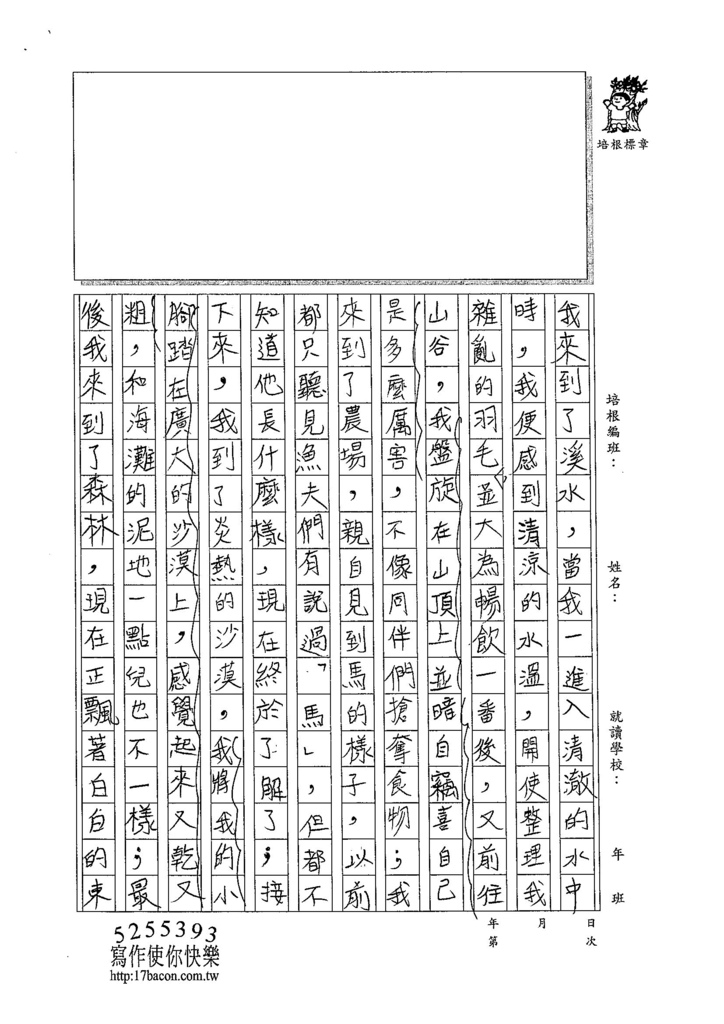 培根標章
培根編班：
姓名：
就讀學校：
年 班
日次
月
年第
我來到了溪水，當我一進入清澈的水中
時，我便感到清涼的水溫，開使整理我
雜亂的羽毛並大為暢飲一番後，又前往
山谷，我盤旋在山頂上並暗自竊喜自己
是多麼厲害，不像同伴們搶奪食物；我
來到了農場，親自見到馬的樣子，以前
都只聽見漁夫們有說過「馬」，但都不
知道他長什麼樣，現在終於了解了；接
下來，我到了炎熱的沙漠，我將我的小
腳踏在廣大的沙漠上，感覺起來又乾又
粗，和海灘的泥地一點兒也不一樣；最
後我來到了森林，現在正飄著白白的東
5255393
寫作使你快樂
http:17bacon.com.tw